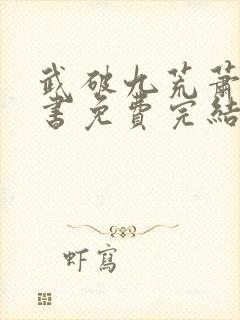 武破九荒蕭
書免費完結
虾寫